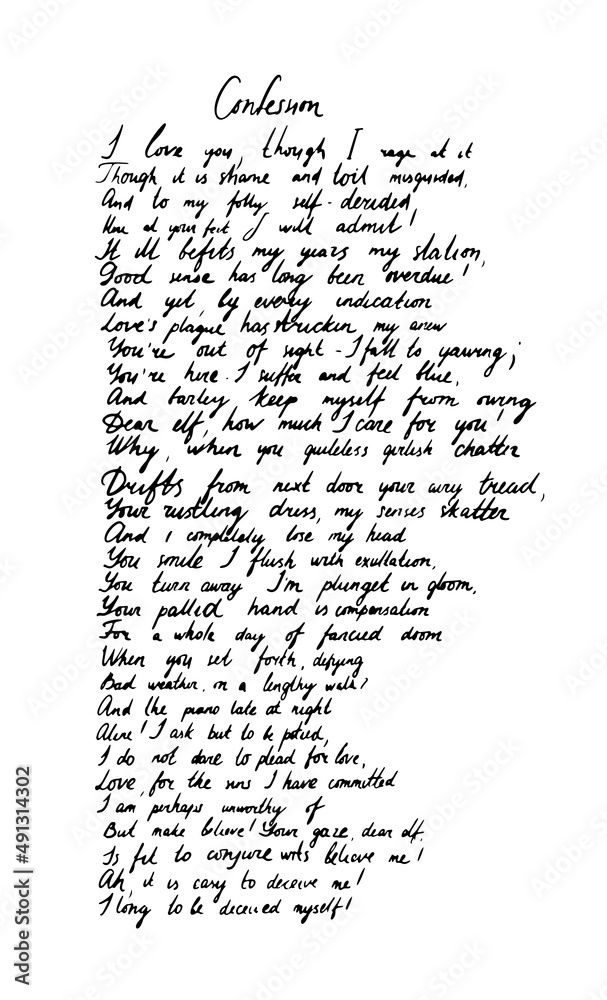 Confession
I love you, though I rage at it
Though it is shame and toil misguided,
And to my folly self-derided,
Here at your feet I will admit!
It ill befits my years my station,
Good sense has long been overdue!
And yet, by every indication
Love's plague has stricken my anew
You're out of sight - I fall to yawning;
You're here. I suffer and feel blue,
And barley keep myself from owing
Dear elf, how much I care for you!
Why, when you guileless girlish chatter
Drifts from next door your airy tread,
Your rustling dress, my senses skatter
And I completely lose my head
You smile I flush with exullation,
You turn away I'm plunget in gloom,
Your pallid hand is compensation
For a whole day of fancied doom
When you set forth, defying
Bad weather, on a lengthy walk?
And the piano late at night
Aline! I ask but to be pitied,
I do not dare to plead for love,
Love, for the sins I have committed
I am perhaps unworthy of
But make believe! Your gaze, dear elf,
Is fit to conjure wits believe me!
Ah, it is easy to deceive me!
I long to be deceived myself!
Adobe Stock | #491314302